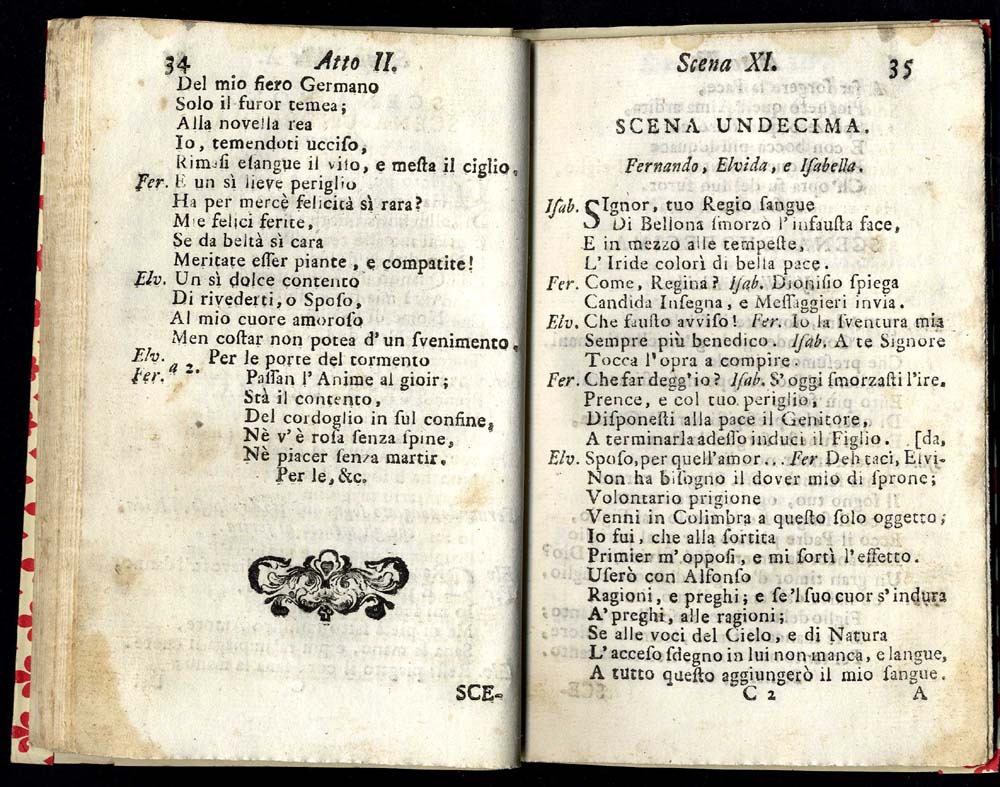 34 Atto II.
Del mio fiero Germano
Solo il furor temea;
Alla novella rea
Io, temendoti ucciso,
Rimasi esangue il viso, e mesta il ciglio.
Fer. E un sì lieve periglio
Ha per mercè felicità sì rara?
Mie felici ferite,
Se da beltà sì cara
Meritate esser piante, e compatite!
Elv. Un sì dolce contento
Di rivederti, o Sposo,
Al mio cuore amoroso
Men costar non potea d'un svenimento.
Elv. Per le porte del tormento
Fer. a 2. Passan l'Anime al gioir;
Stà il contento,
Del cordoglio in sul confine,
Nè v'è rosa senza spine,
Nè piacer senza martir.
Per le, &c.
SCE-
Scena XI. 35
SCENA UNDECIMA.
Fernando, Elvida, e Isabella.
Isab. SIgnor, tuo Regio sangue
Di Bellona smorzò l'infausta face,
E in mezzo alle tempeste,
L'Iride colorì di bella pace.
Fer. Come, Regina? Isab. Dionisio spiega
Candida Insegna, e Messaggieri invia.
Elv. Che fausto avviso! Fer. Io la sventura mia
Sempre più benedico. Isab. A te Signore
Tocca l'opra a compire.
Fer. Che far degg'io? Isab. S'oggi smorzasti l'ire,
Prence, e col tuo periglio,
Disponesti alla pace il Genitore,
A terminarla adesso induci il Figlio. [da,
Elv. Sposo, per quell'amor... Fer Deh taci, Elvi-
Non ha bisogno il dover mio di sprone;
Volontario prigione
Venni in Colimbra a questo solo oggetto;
Io fui, che alla sortita
Primier m'opposi, e mi sortì l'effetto.
Userò con Alfonso
Ragioni, e preghi; e se'l suo cuor s'indura
A' preghi, alle ragioni;
Se alle voci del Cielo, e di Natura
L'acceso sdegno in lui non manca, e langue,
A tutto questo aggiungerò il mio sangue.
C 2 A